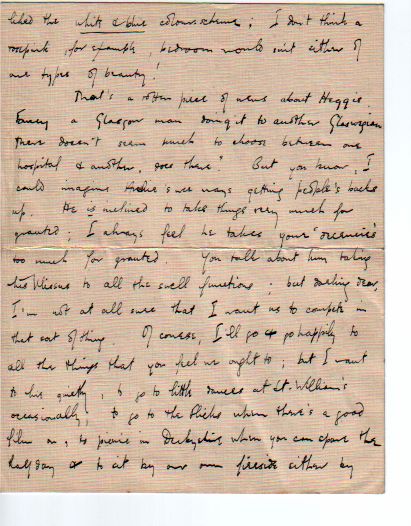 liked the white & blue colour scheme; I don't think a
rose pink, for example, bedroom would suit either of
our types of beauty!
That's a rotten piece of news about Heggie.
Fancy a Glasgow man doing it to another Glaswegian
There doesn't seem much to choose between one
hospital & another, does there? But you know, I
could imagine wee ways getting people's backs
up. He is inclined to take things very much for
granted; I always feel he takes your
too much for granted. You talk about him taking
his to all the swell functions; but darling dear,
I'm not at all sure that I want us to compete in
that sort of thing. Of course, I'll go & go happily to
all the things that you feel we ought to; but I want
to live quietly, to go to little dances at St. William's
occasionally, to go to the flicks when there's a good
film on, to picnic in Derbyshire when you can spare the
half day & to sit by our own fireside either by